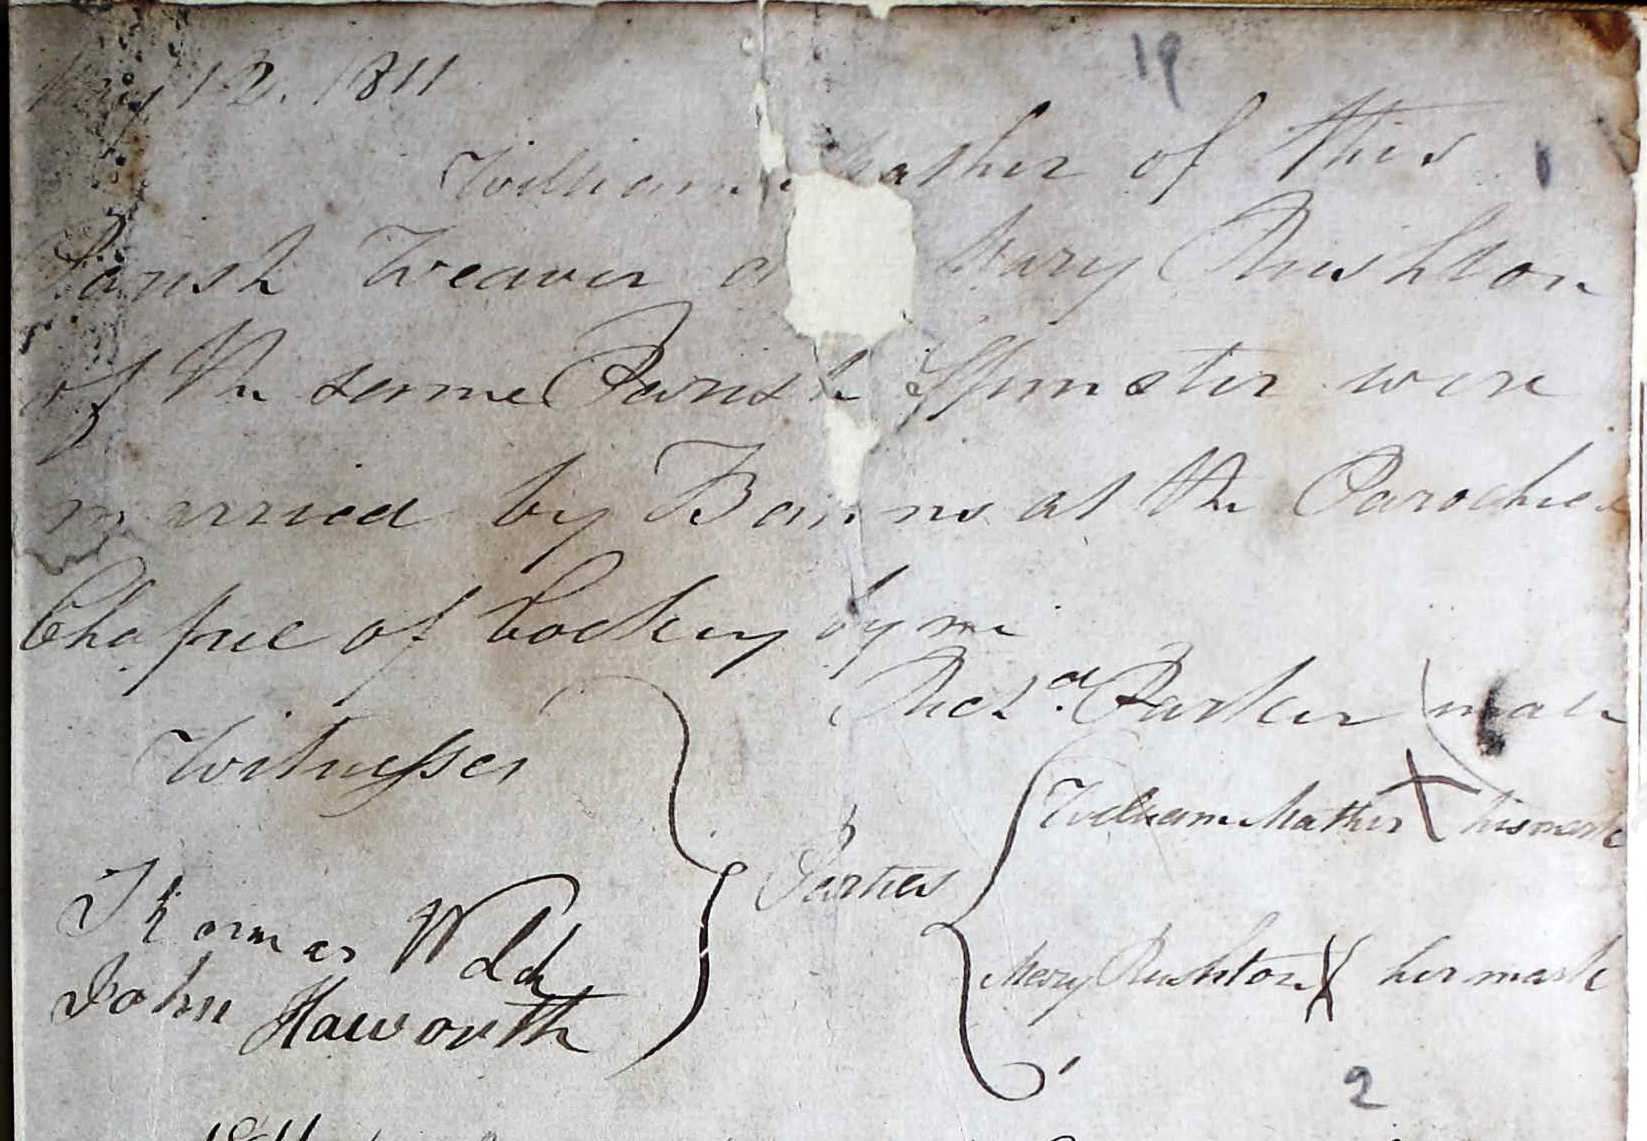 May 12. 1811
19
William Mather of this
1
Parish Weaver a Mary Rushton
of the same Parish Spinster were
married by Banns at the Parochial
Chapel of Cockey by me
Rich.d Parker
Witnesses
William Mather X his mark
Parties
Thomas
John Haworth
Mary Rushton X her mark
2